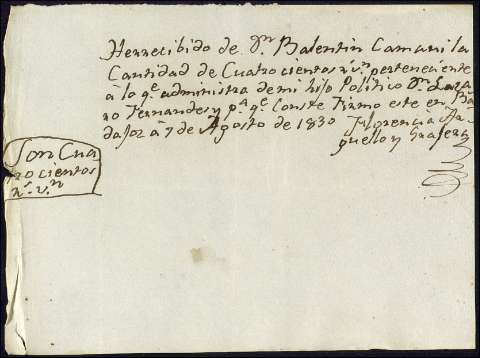 Herrecibido de Dn Balentin Camanila
Cantidad de Cuatrocientos rs vn perteneciente
à lo qe administra demi hijo Politico Dn Laza
ro Fernandes y pa qe Conste Firmo este en Ba
dajoz à 7 de Agosto de 1830 Florencia Ar
guello y Grajera
Son Cua
trocientos
rs vn